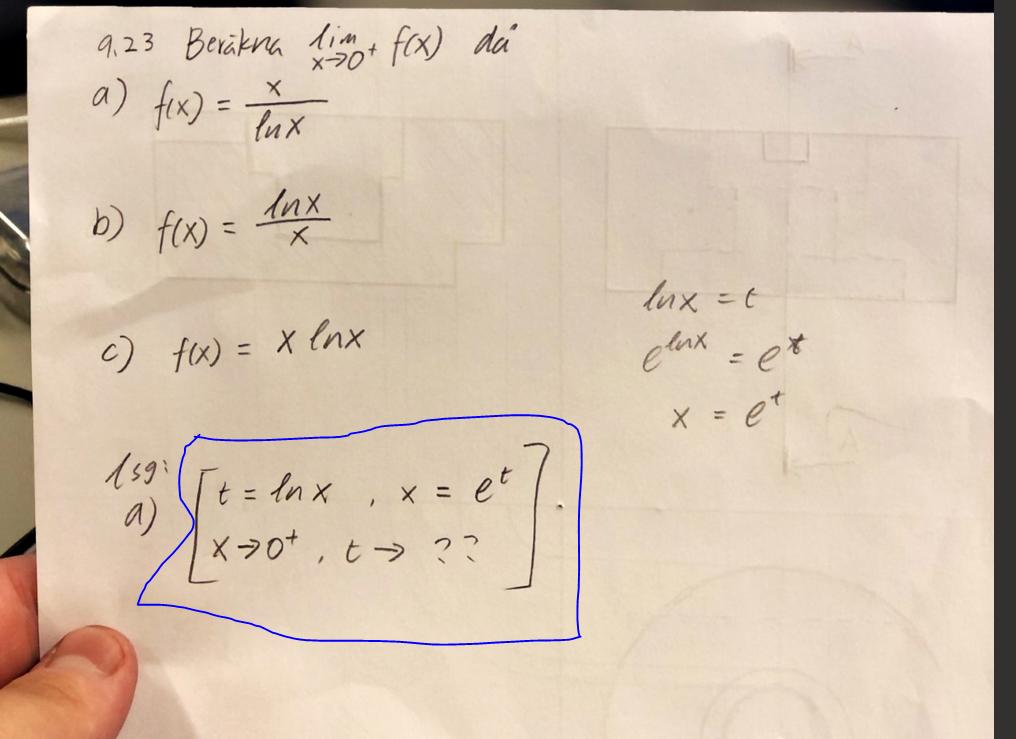 9.23 Beräkna lim x→0+ f(x) då
a) f(x) = x / lnx
b) f(x) = lnx / x
c) f(x) = x lnx
lnx = t
e^lnx = e^t
x = e^t
lsg:
a) [t = lnx , x = e^t
x→0+ , t→ ??]